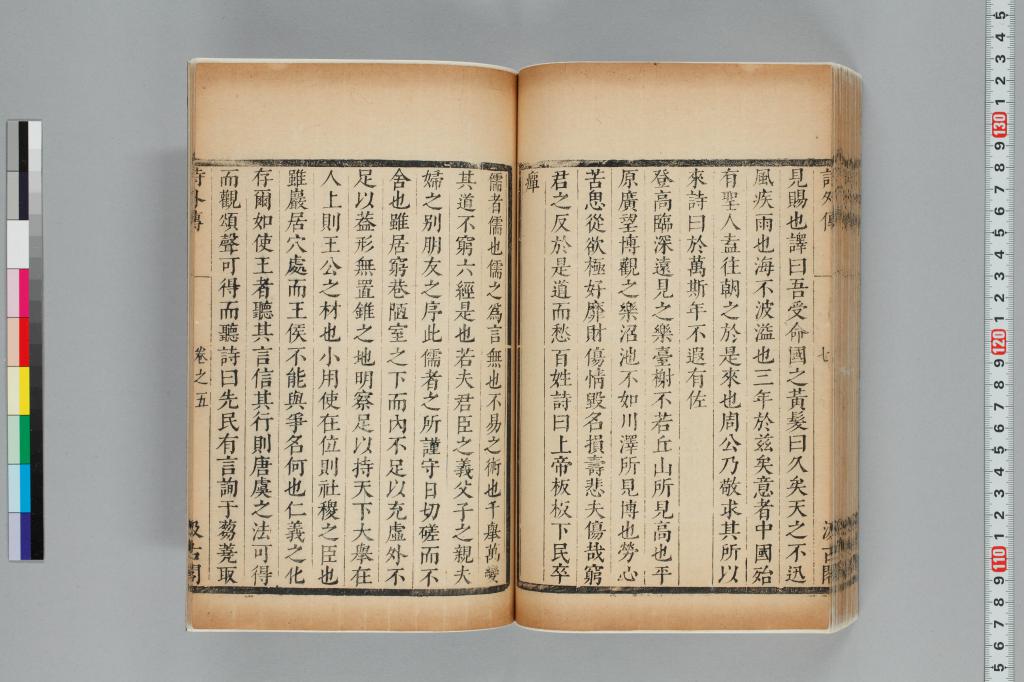 詩外傳
七
汲古閣
見賜也譯曰吾受命國之黃髮曰久矣天之不迅
風疾雨也海不波溢也三年於茲矣意者中國殆
有聖人盍往朝之於是來也周公乃敬求其所以
來詩曰於萬斯年不遐有佐
登高臨深遠見之樂臺榭不若丘山所見高也平
原廣望博觀之樂沼池不如川澤所見博也勞心
苦思從欲極好靡財傷情毀名損壽悲夫傷哉窮
君之反於是道而愁百姓詩曰上帝板板下民卒
癉
儒者儒也儒之爲言無也不易之術也千舉萬變
其道不窮六經是也若夫君臣之義父子之親夫
婦之别朋友之序此儒者之所謹守日切磋而不
舍也雖居窮巷陋室之下而內不足以充虛外不
足以葢形無置錐之地明察足以持天下大舉在
人上則王公之材也小用使在位則社稷之臣也
雖巖居穴處而王侯不能與爭名何也仁義之化
存爾如使王者聽其言信其行則唐虞之法可得
而觀頌聲可得而聽詩曰先民有言詢于蒭蕘取
詩外傳
卷之五
汲古閣
5 4 3 2 1 130 9 8 7 6 5 4 3 2 1 120 9 8 7 6 5 4 3 2 1 110 9 8 7 6 5